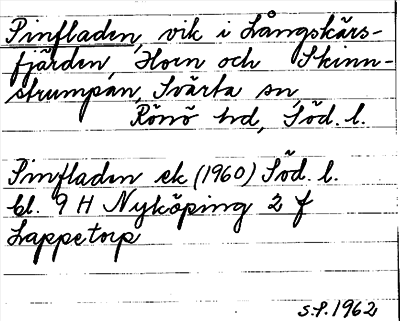 Pinfladen, vik i Långskärs-
fjärden, Hoen och Skinn-
strumpan, Svärta sn,
Rönö hd, Söd. l.
Pinfladen ek (1960) Söd. l.
bl. 9 H Nyköping 2 f
Lappetorp
S.P. 1962